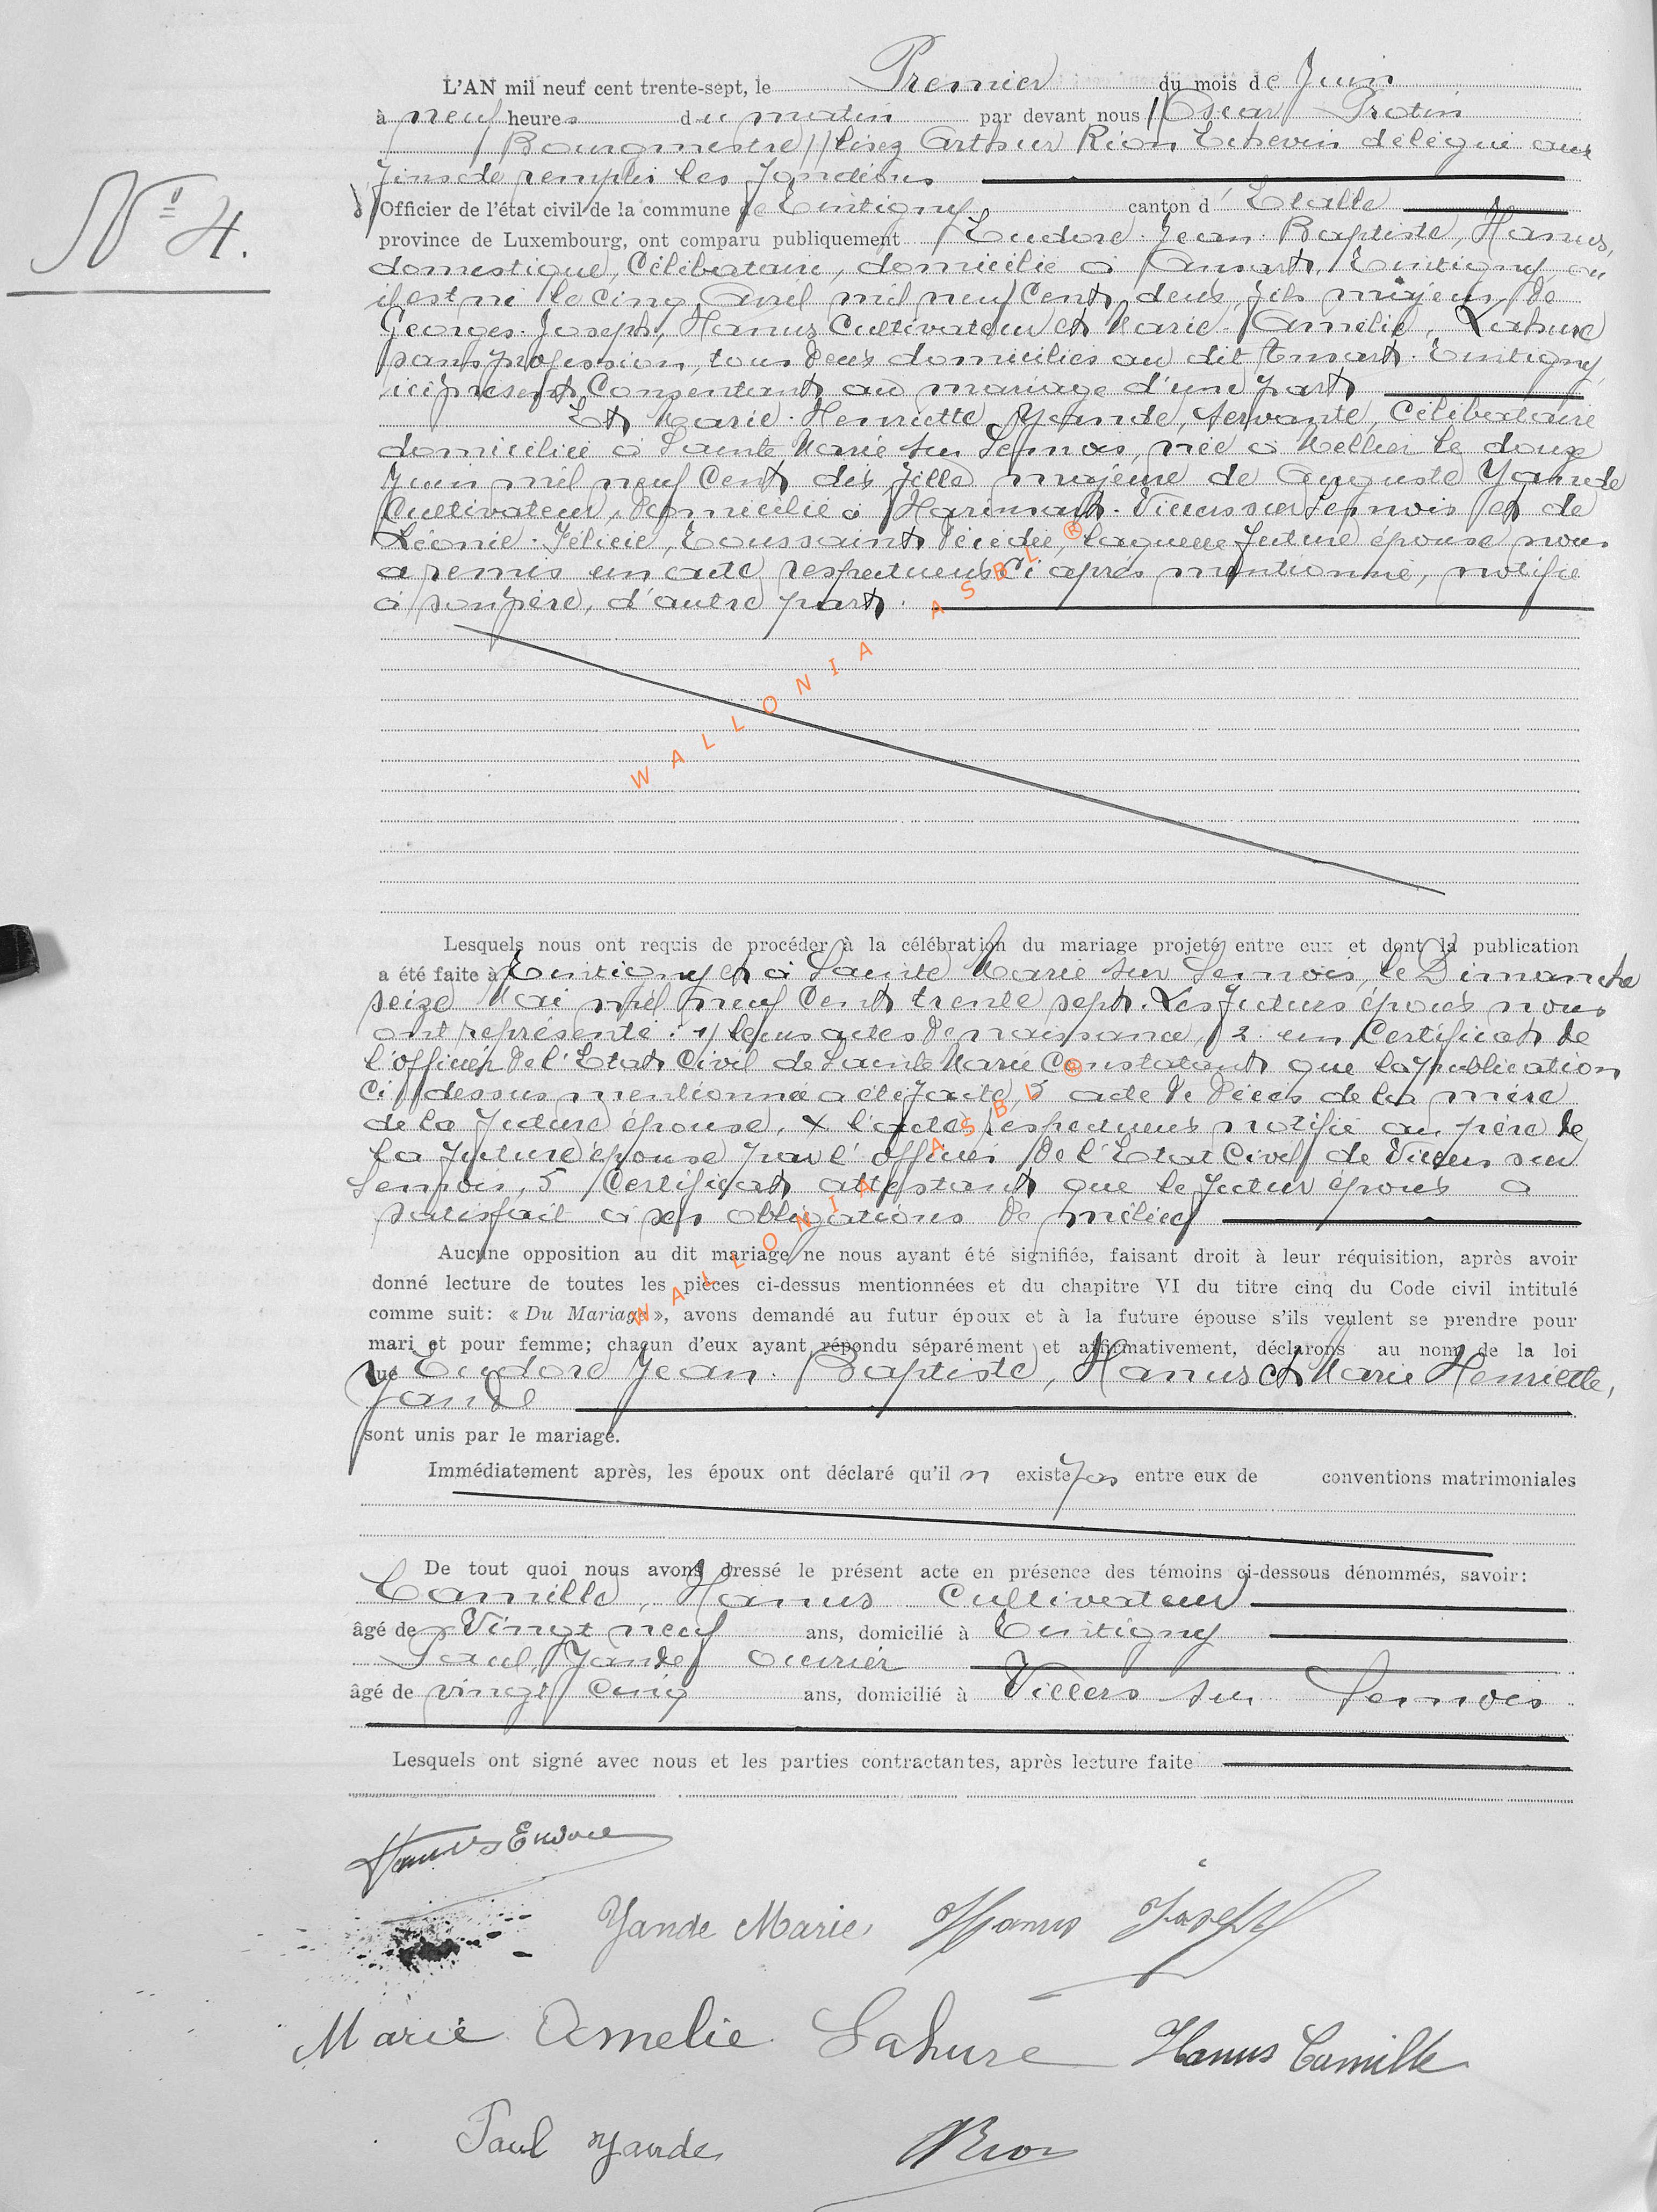 L'AN mil neuf cent trente-sept, le Premier du mois de Juin
à neuf heures du matin par devant nous //Oscar Protin
Bourgmestre// lisez Arthur Rion Echevin délégué aux
fins de remplir les fonctions
N° 4.
d' Officier de l'état civil de la commune de Tintigny canton d' Etalle
province de Luxembourg, ont comparu publiquement Eudore. Jean. Baptiste, Hanus,
domestique, Célibataire, domicilié à Ansart, Tintigny où
il est né le cinq Avril mil neuf Cent deux, fils majeur de
Georges. Joseph, Hanus Cultivateur et Marie. Amélie, Lahure
sans profession, tous deux domiciliés au dit Ansart. Tintigny,
ici présent Consentant au mariage d'une part
Et Marie. Henriette Yande, servante, Célibataire
domiciliée à Sainte Marie sur Semois, née à Mellier le douze
Juin mil neuf Cent dix fille majeure de Auguste Yande
Cultivateur, domicilié à Harinsart. Villers sur Semois et de
Léonie. Félicie, Toussaint décédée, laquelle future épouse nous
a remis un acte respectueux Ci après mentionné, notifié
à son père, d'autre part.
WALLONIA ASBL ®
Lesquels nous ont requis de procéder à la célébration du mariage projeté entre eux et dont la publication
a été faite à Tintigny et à Sainte Marie sur Semois, le Dimanche
seize Mai mil neuf Cent trente sept. Les futurs époux nous
ont représenté : 1/ leurs actes de naissance, 2 un Certificat de
l'officier de l'Etat Civil de Sainte Marie Constatant que la publication
Ci dessus mentionnée a été faite, 3 acte de décès de la mère
de la future épouse, 4 l'acte respectueux notifié au père de
la future épouse par l'officier de l'Etat Civil de Villers sur
Semois, 5 Certificat attestant que le futur époux a
satisfait à ses obligations de milice
WALLONIA ASBL ®
Aucune opposition au dit mariage ne nous ayant été signifiée, faisant droit à leur réquisition, après avoir
donné lecture de toutes les pièces ci-dessus mentionnées et du chapitre VI du titre cinq du Code civil intitulé
comme suit: « Du Mariage », avons demandé au futur époux et à la future épouse s'ils veulent se prendre pour
mari et pour femme; chacun d'eux ayant répondu séparément et affirmativement, déclarons au nom de la loi
que Eudore Jean. Baptiste, Hanus et Marie Henriette,
Yande
sont unis par le mariage.
Immédiatement après, les époux ont déclaré qu'il n existe pas entre eux de conventions matrimoniales
De tout quoi nous avons dressé le présent acte en présence des témoins ci-dessous dénommés, savoir:
Camille, Hanus Cultivateur
âgé de Vingt neuf ans, domicilié à Tintigny
Paul, Yande ouvrier
âgé de vingt cinq ans, domicilié à Villers sur Semois
Lesquels ont signé avec nous et les parties contractantes, après lecture faite
Hanus Eudore
Yande Marie Hanus Joseph
Marie Amelie Lahure Hanus Camille
Paul Yande ARion